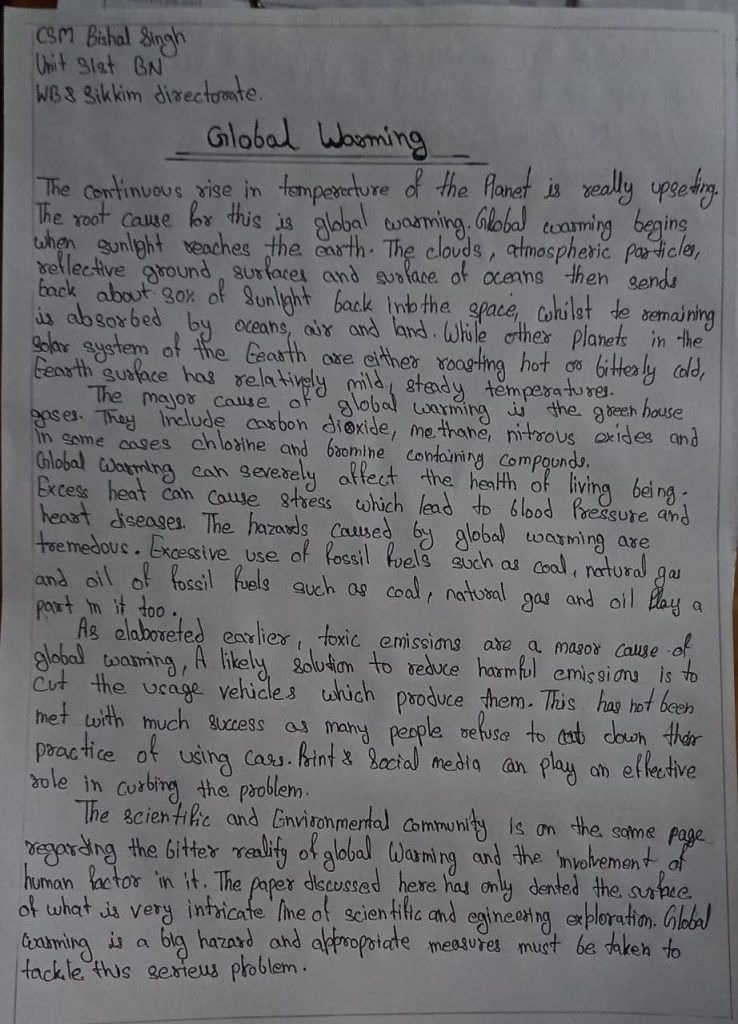 CSM Bishal Singh
Unit 31st BN
WB & Sikkim directorate.
Global Warming
The continuous rise in temperature of the Planet is really upseting.
The root cause for this is global warming. Global warming begins
when sunlight reaches the earth. The clouds, atmospheric particles,
reflective ground surfaces and surface of oceans then sends
back about 30% of Sunlight back into the space, whilst te remaining
is absorbed by oceans, air and land. While other planets in the
Solar system of the Eearth are either roasting hot or bitterly cold,
Eearth surface has relatively mild, steady temperatures.
The major cause of global warming is the green house
gases. They include carbon dioxide, methane, nitrous oxides and
in some cases chlorine and bromine containing compounds.
Global Warming can severely affect the health of living being.
Excess heat can cause stress which lead to blood Pressure and
heart diseases. The hazards caused by global warming are
tremedous. Excessive use of fossil fuels such as coal, natural gas
and oil of fossil fuels such as coal, natural gas and oil Play a
part in it too.
As elaboreted earlier, toxic emissions are a masor cause of
global warming, A likely solution to reduce harmful emissions is to
cut the usage vehicles which produce them. This has not been
met with much success as many people refuse to cut down their
practice of using cars. Print & Social media can play an effective
role in curbing the problem.
The scientific and Environmental Community is on the same page
regarding the bitter reality of global Warming and the involvement of
human factor in it. The paper discussed here has only dented the surface
of what is very intricate line of scientific and egineering exploration. Global
warming is a big hazard and appropriate measures must be taken to
tackle this serieus problem.